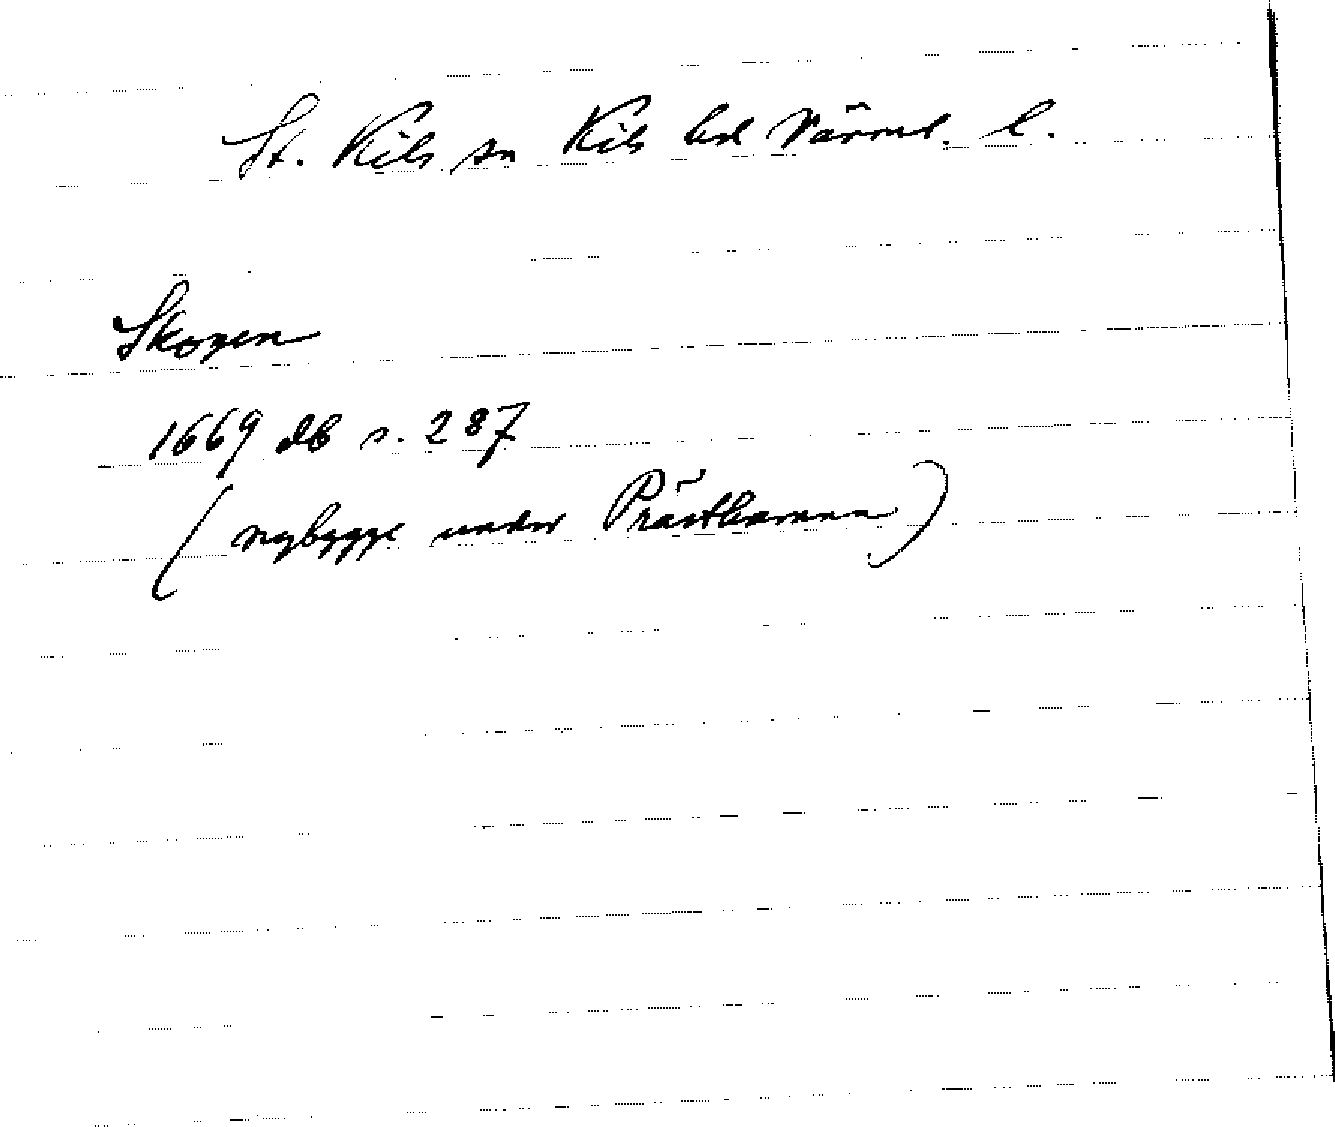 St. Kils sn Kils hd Värml. l.
Skogen
1669 db s. 287
(nybygge under Prästbonn)